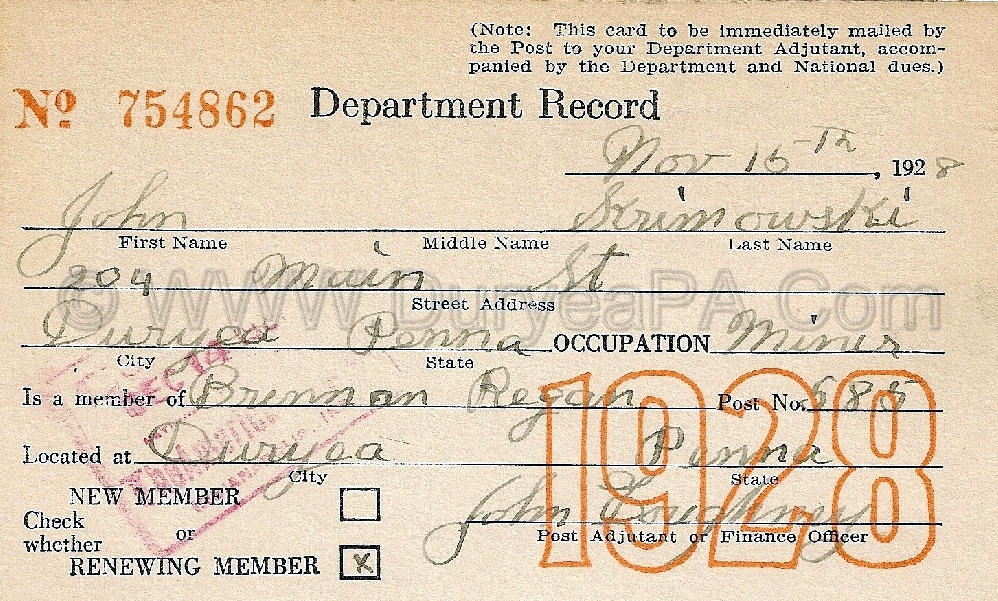 (Note: This card to be immediately mailed by
the Post to your Department Adjutant, accom-
panied by the Department and National dues.)
No 754862 Department Record
Nov 15th, 1928
John Skrimowski
First Name Middle Name Last Name
204 Main St
© WWW.DuryeaPA.Com
Street Address
Duryea Penna OCCUPATION Miner
City State
Is a member of Brennan Regan Post No. 585
DEC 14
1928
Located at Duryea Penna
City State
NEW MEMBER
Check
whether or
John Loughney
Post Adjutant or Finance Officer
RENEWING MEMBER X